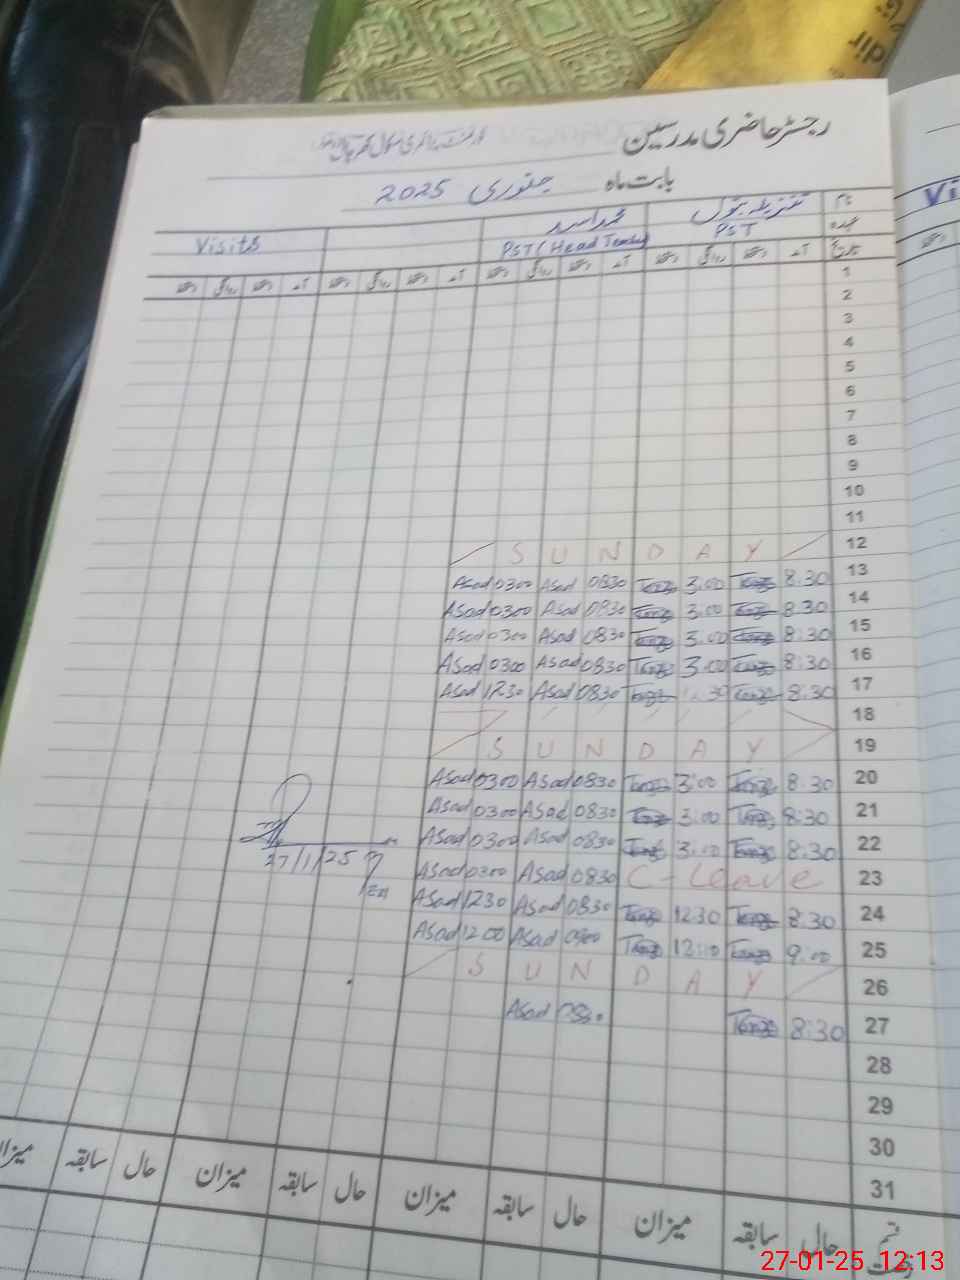 رجسٹر حاضری مدرسین
بابت ماہ جنوری 2025
نام تنزیلہ بتول محمد اسد Visits
عہدہ PST PST (Head Teacher)
تاریخ آمد دستخط روانگی دستخط آمد دستخط روانگی دستخط آمد دستخط روانگی دستخط آمد دستخط روانگی دستخط
1
2
3
4
5
6
7
8
9
10
11
SUNDAY 12
Asad 0300 Asad 0830 3:00 8:30 13
Asad 0300 Asad 0830 3:00 8:30 14
Asad 0300 Asad 0830 3:00 8:30 15
Asad 0300 Asad 0830 3:00 8:30 16
Asad 1230 Asad 0830 8:30 17
18
SUNDAY 19
Asad 0300 Asad 0830 3:00 8:30 20
Asad 0300 Asad 0830 3:00 8:30 21
Asad 0300 Asad 0830 3:00 8:30 22
27/1/25
Asad 0300 Asad 0830 C-Leave 23
Asad 1230 Asad 0830 1230 8:30 24
Asad 1200 Asad 0900 9:00 25
SUNDAY 26
Asad 0830 8:30 27
28
29
30
31
حال سابقہ میزان حال سابقہ میزان حال سابقہ میزان حال سابقہ میزان
قسم رخصت
27-01-25 12:13